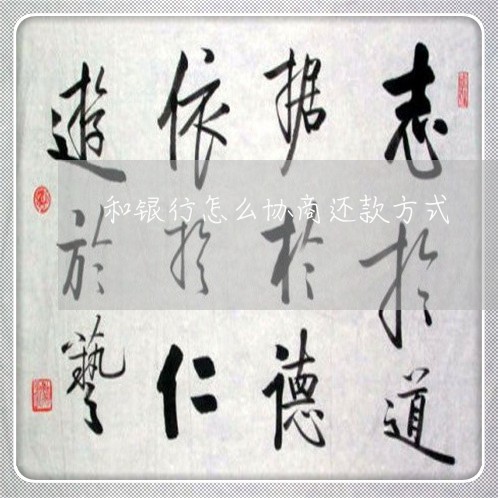 志於道
据於德
依於仁
遊於藝
和银行怎么协商还款方式